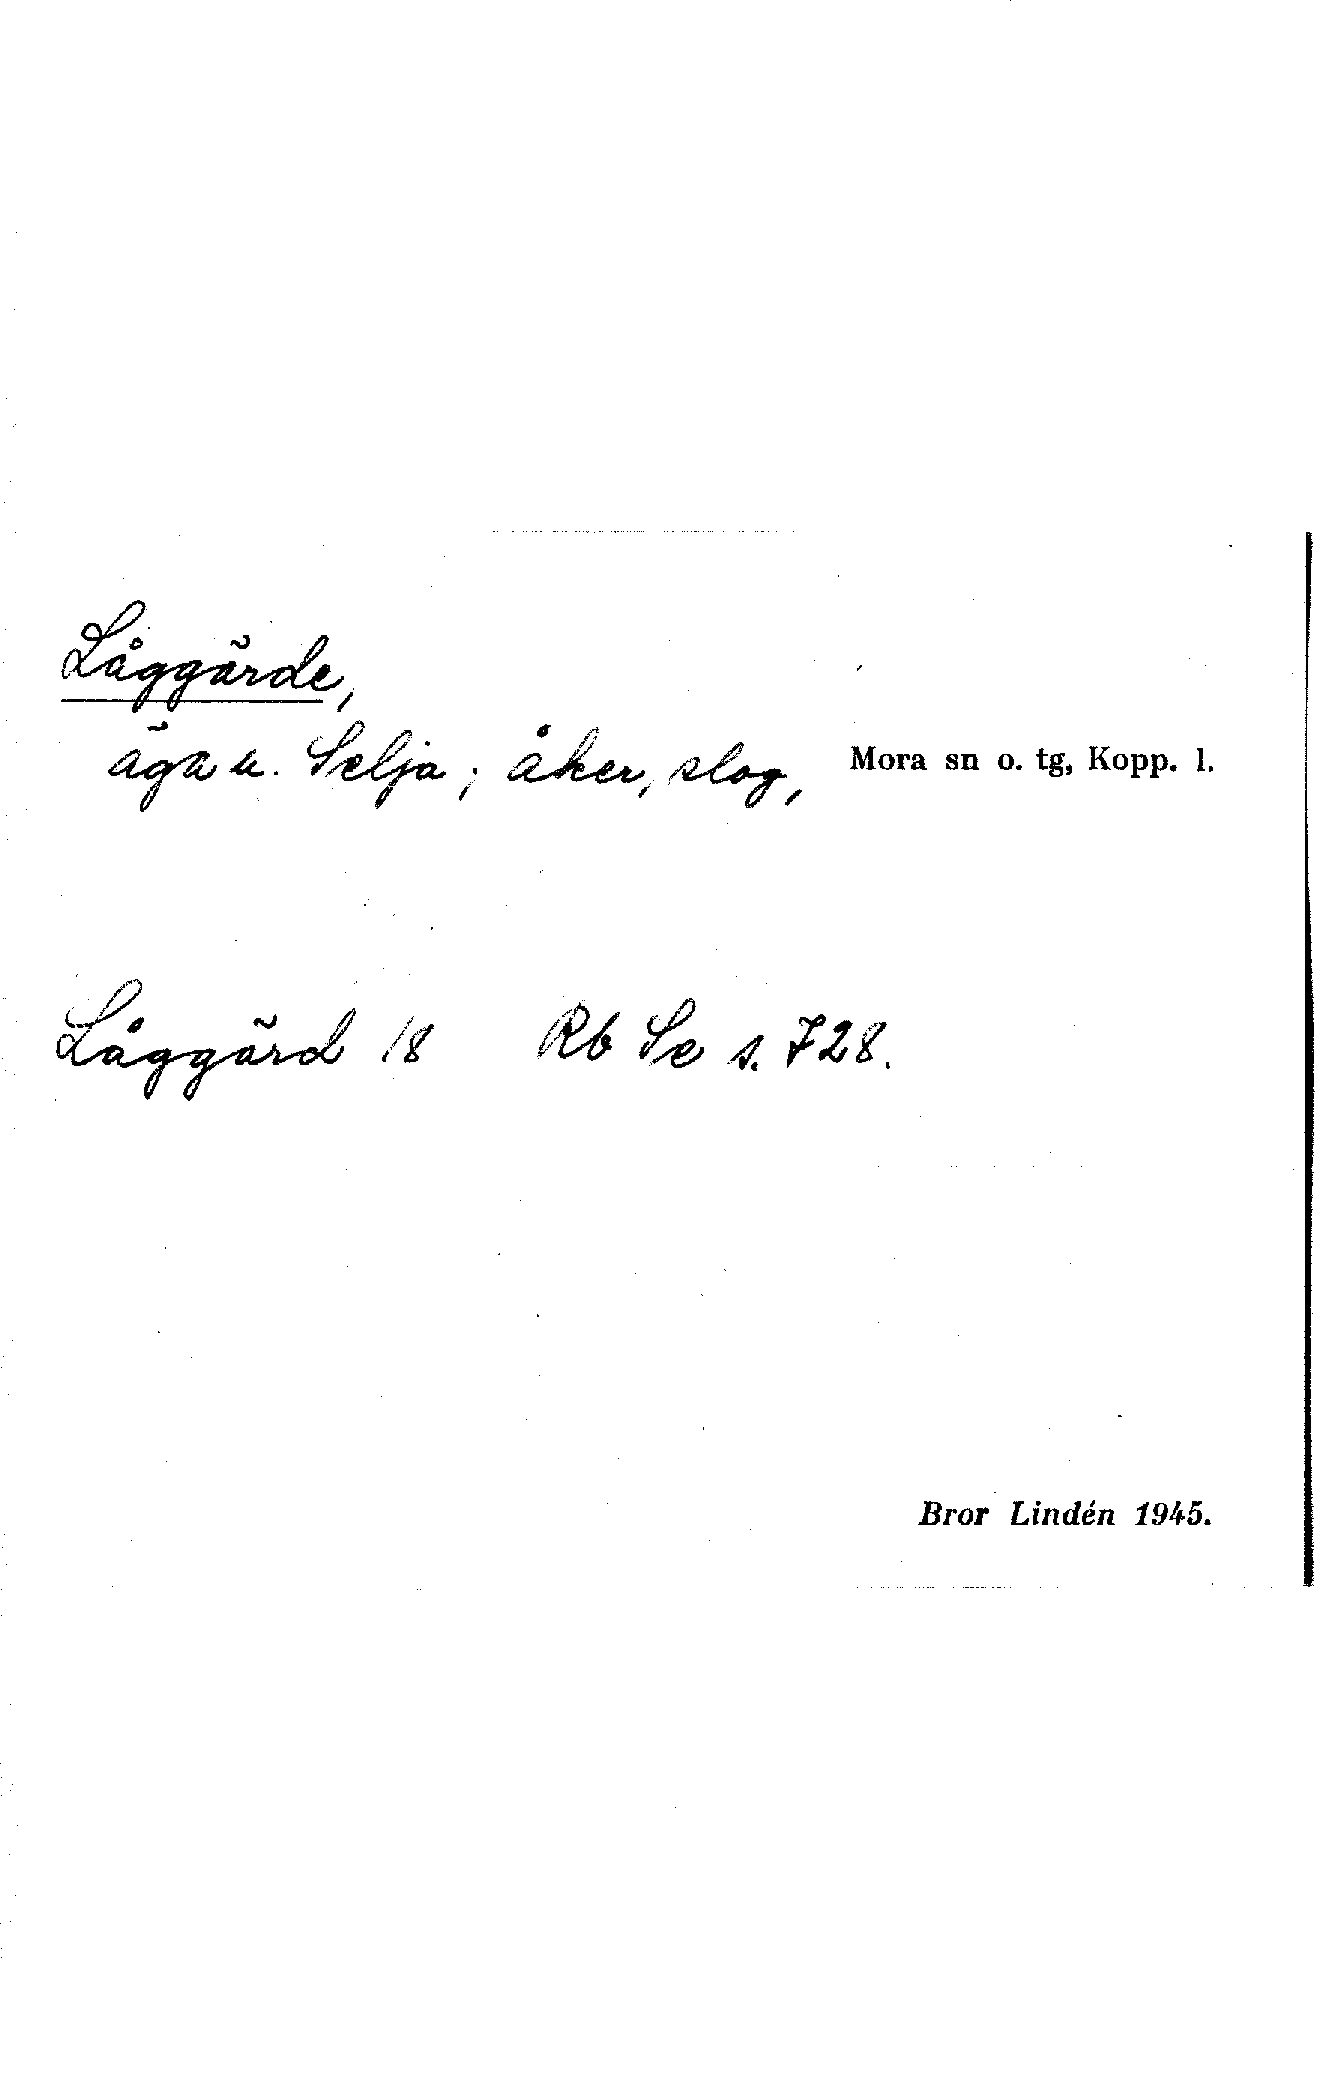 Låggärde,
äga u. Selja; åker, slog, Mora sn o. tg, Kopp. l.
Låggärd 18 Rb Se s. 728.
Bror Lindén 1945.